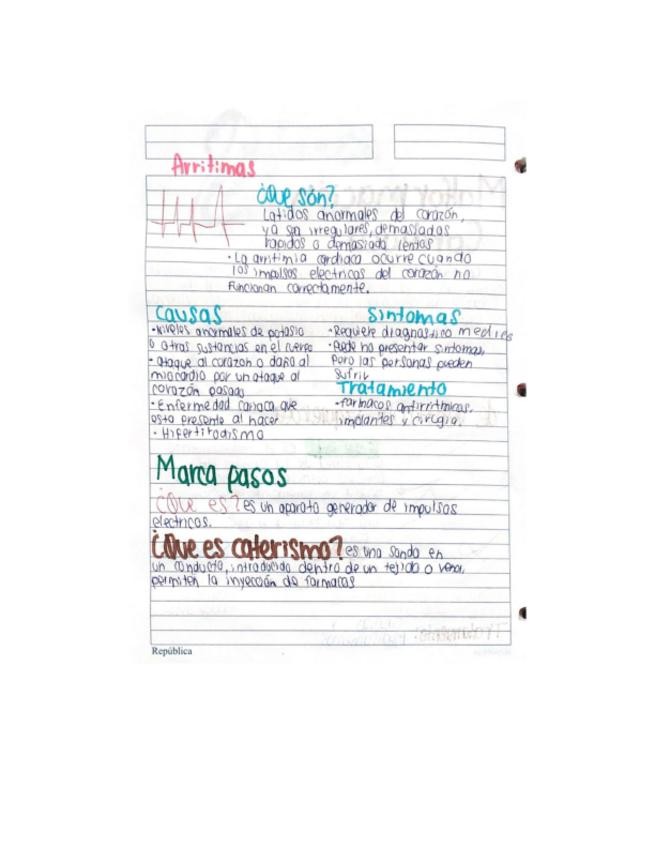 Arritimas
¿Que són?
Latidos anormales del corazón,
ya sea irregulares, demasiadas
rapidos o demasiado lentas
· La arritmia cardiaca ocurre cuando
los impulsos electricos del corazón no
funcionan correctamente.
Causas
· Niveles anormales de potasio
o otras sustancias en el cuerpo
· ataque al corazon o daño al
miocardio por un ataque al
corazón pasado
· Enfermedad cariaca que
esta presente al nacer
· Hifertitodismo
Sintomas
· Requiere diagnostico medico
· Pede no presentar sintomas,
pero las personas pueden
sufrir
Tratamiento
· farmacos antirritmicos,
implantes y cirugia.
Marca pasos
¿Que es? es un aparato generador de impulsos
electricos.
¿Que es caterismo? es una sonda en
un conducto, introducido dentro de un tejido o vena,
permiten la inyección de farmacos
República